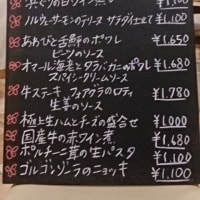 ¥1.100
ノルウェーサーモンのテリーヌ サラダ仕立て ¥1.100
あわびと舌鮃のポワレ ¥1.650
ソース
オマール海老とタラバガニのポワレ ¥1.680
スパイシークリームソース
牛ステーキ、フォアグラのロティ ¥1.780
生姜のソース
極上生ハムとチーズの盛合せ ¥1000
国産牛の赤ワイン煮 ¥1.480
ポルチーニ茸の生パスタ ¥1.100
ゴルゴンゾーラのニョッキ ¥1.100